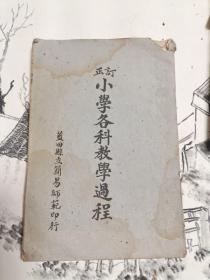 訂正
小學各科教學過程
藍田縣立簡易師範印行